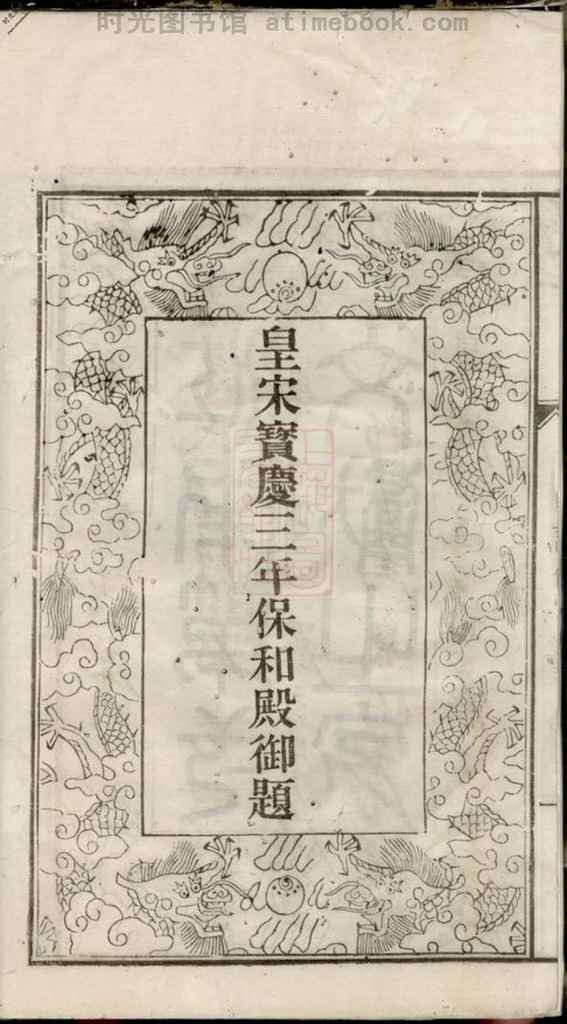 时光图书馆 atimebook.com
皇宋寳慶三年保和殿御題